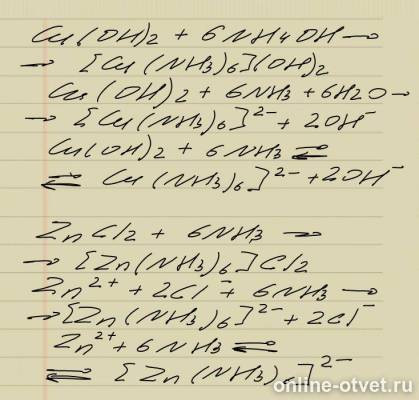 Cu(OH)2 + 6NH4OH →
→ [Cu(NH3)6](OH)2
Cu(OH)2 + 6NH3 + 6H2O →
→ [Cu(NH3)6]²⁻ + 2OH⁻
Cu(OH)2 + 6NH3 ⇌
⇌ Cu(NH3)6]²⁻ + 2OH⁻
ZnCl2 + 6NH3 →
→ [Zn(NH3)6]Cl2
Zn²⁺ + 2Cl⁻ + 6NH3 →
→ [Zn(NH3)6]²⁻ + 2Cl⁻
Zn²⁺ + 6NH3 ⇌
⇌ [Zn(NH3)6]²⁻
online-otvet.ru